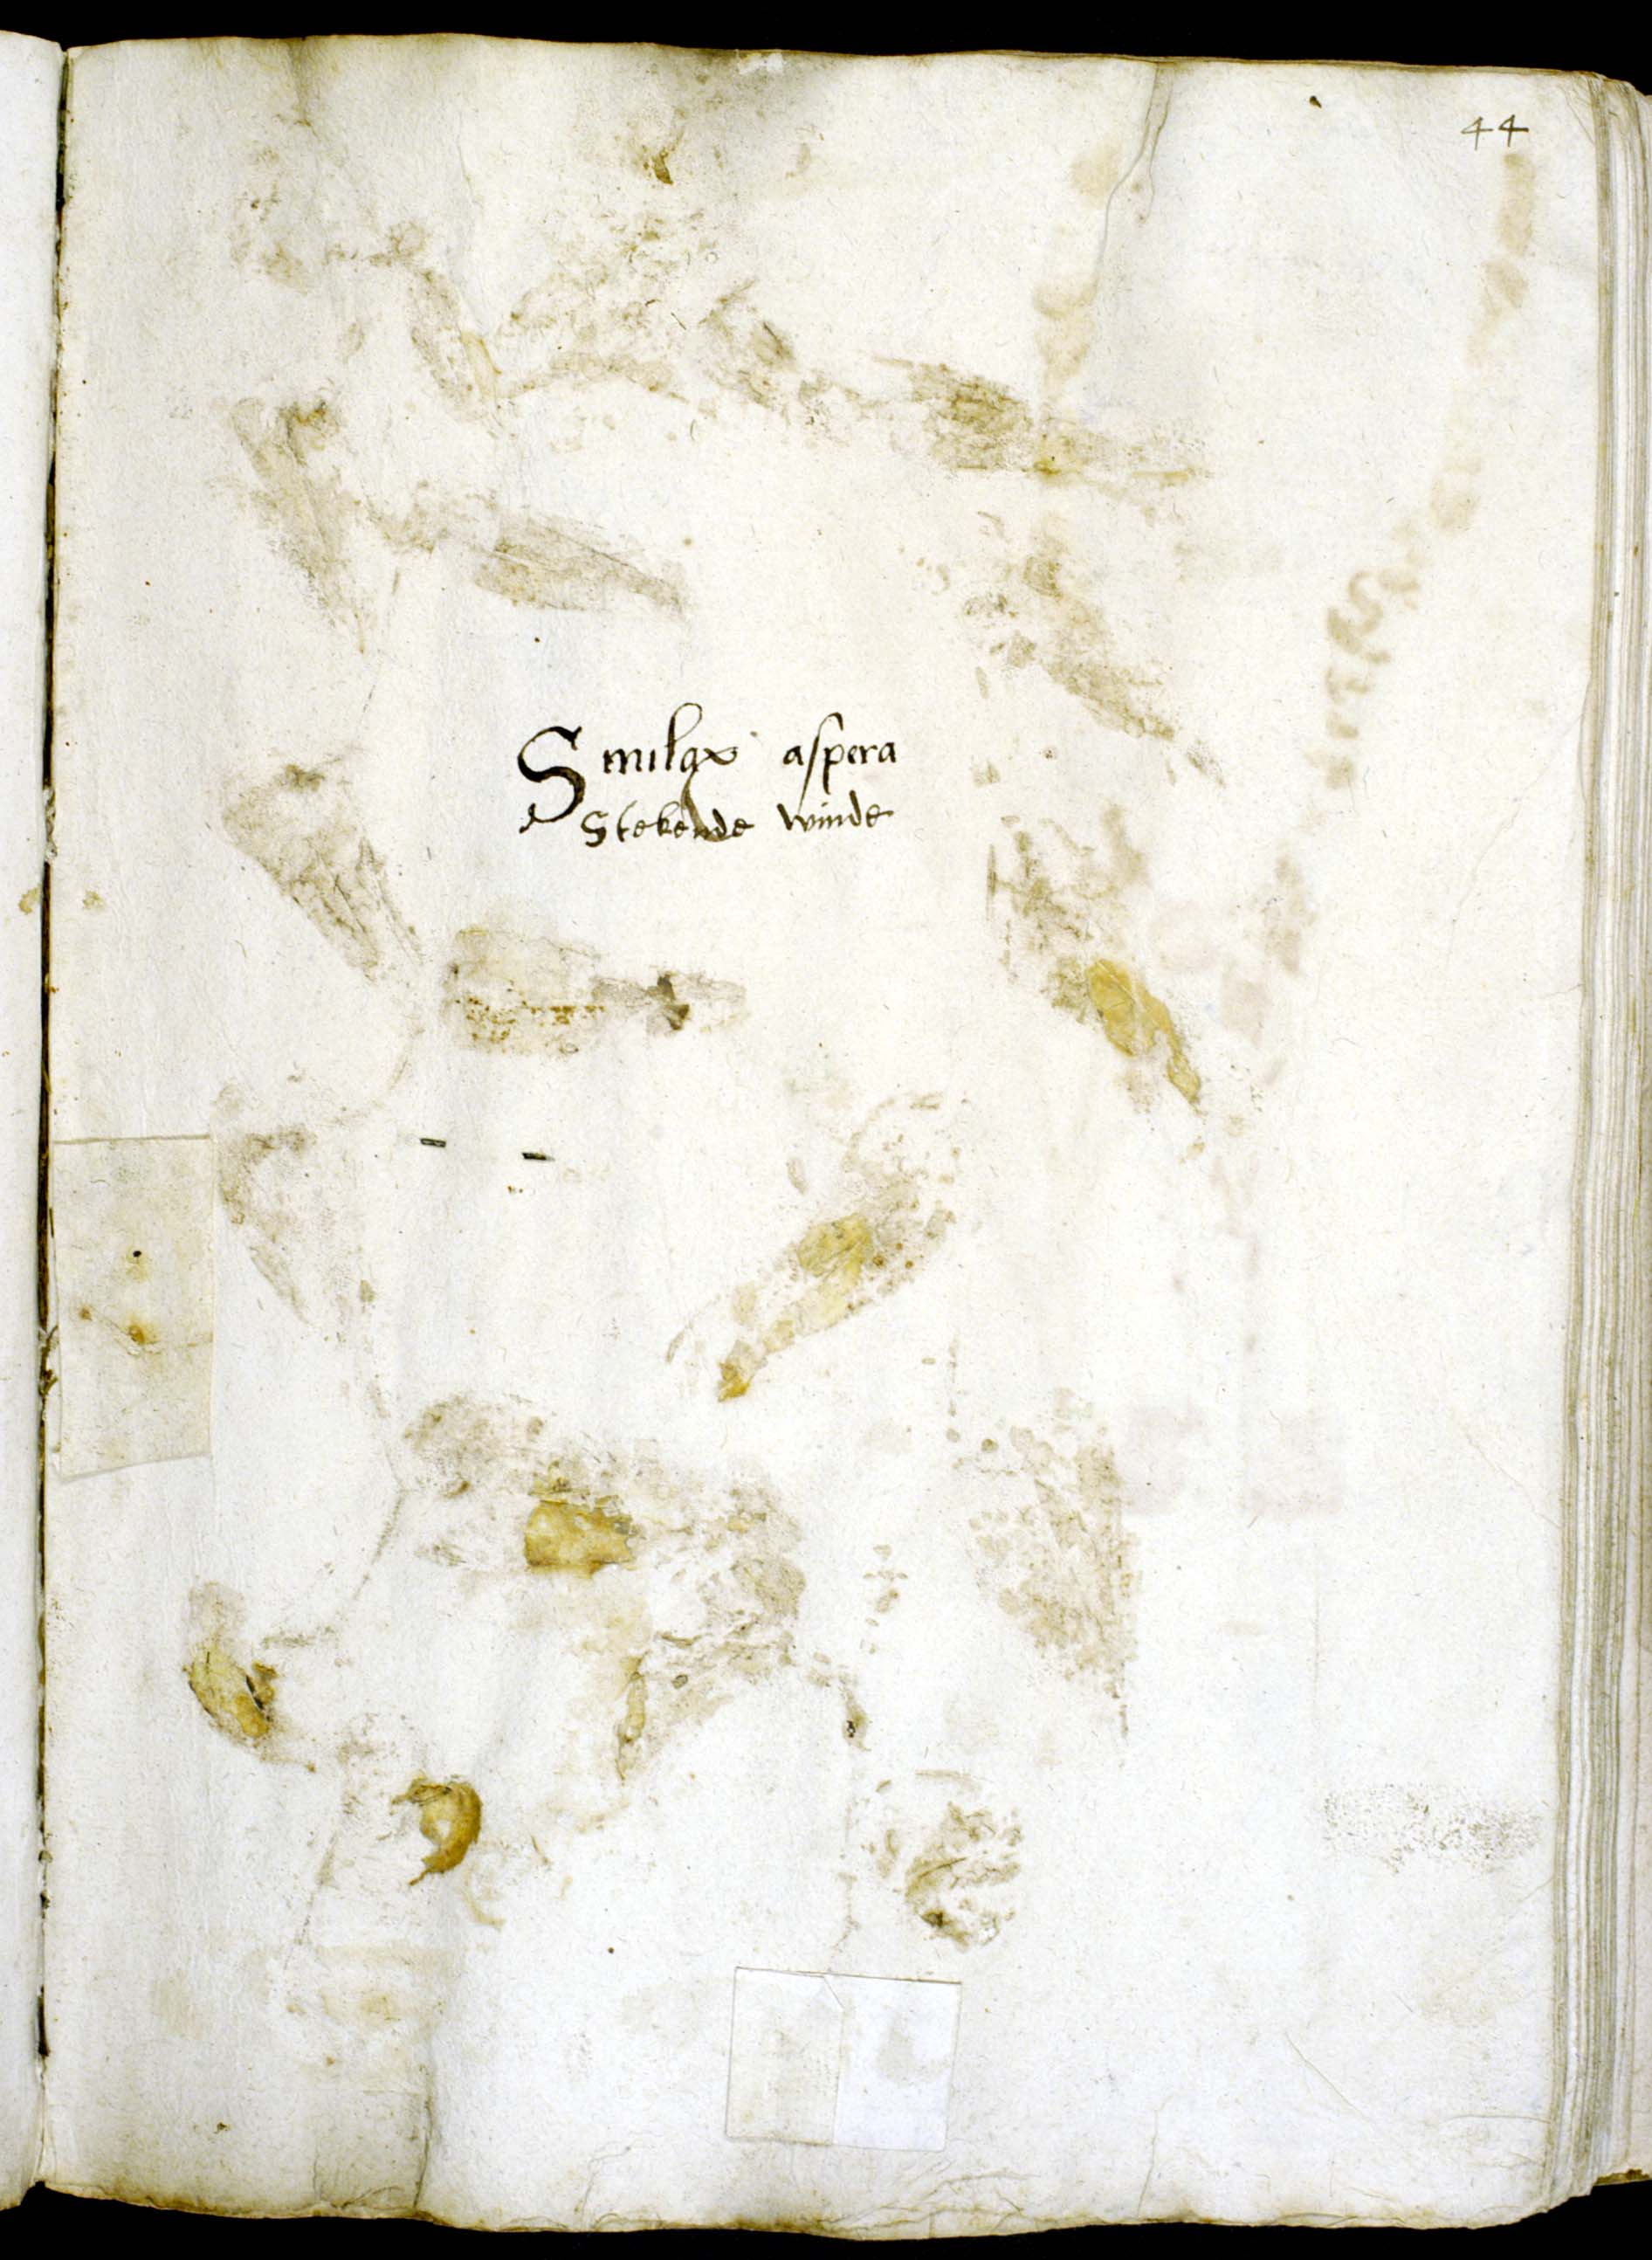 44
Smilax aspera
Stekende winde